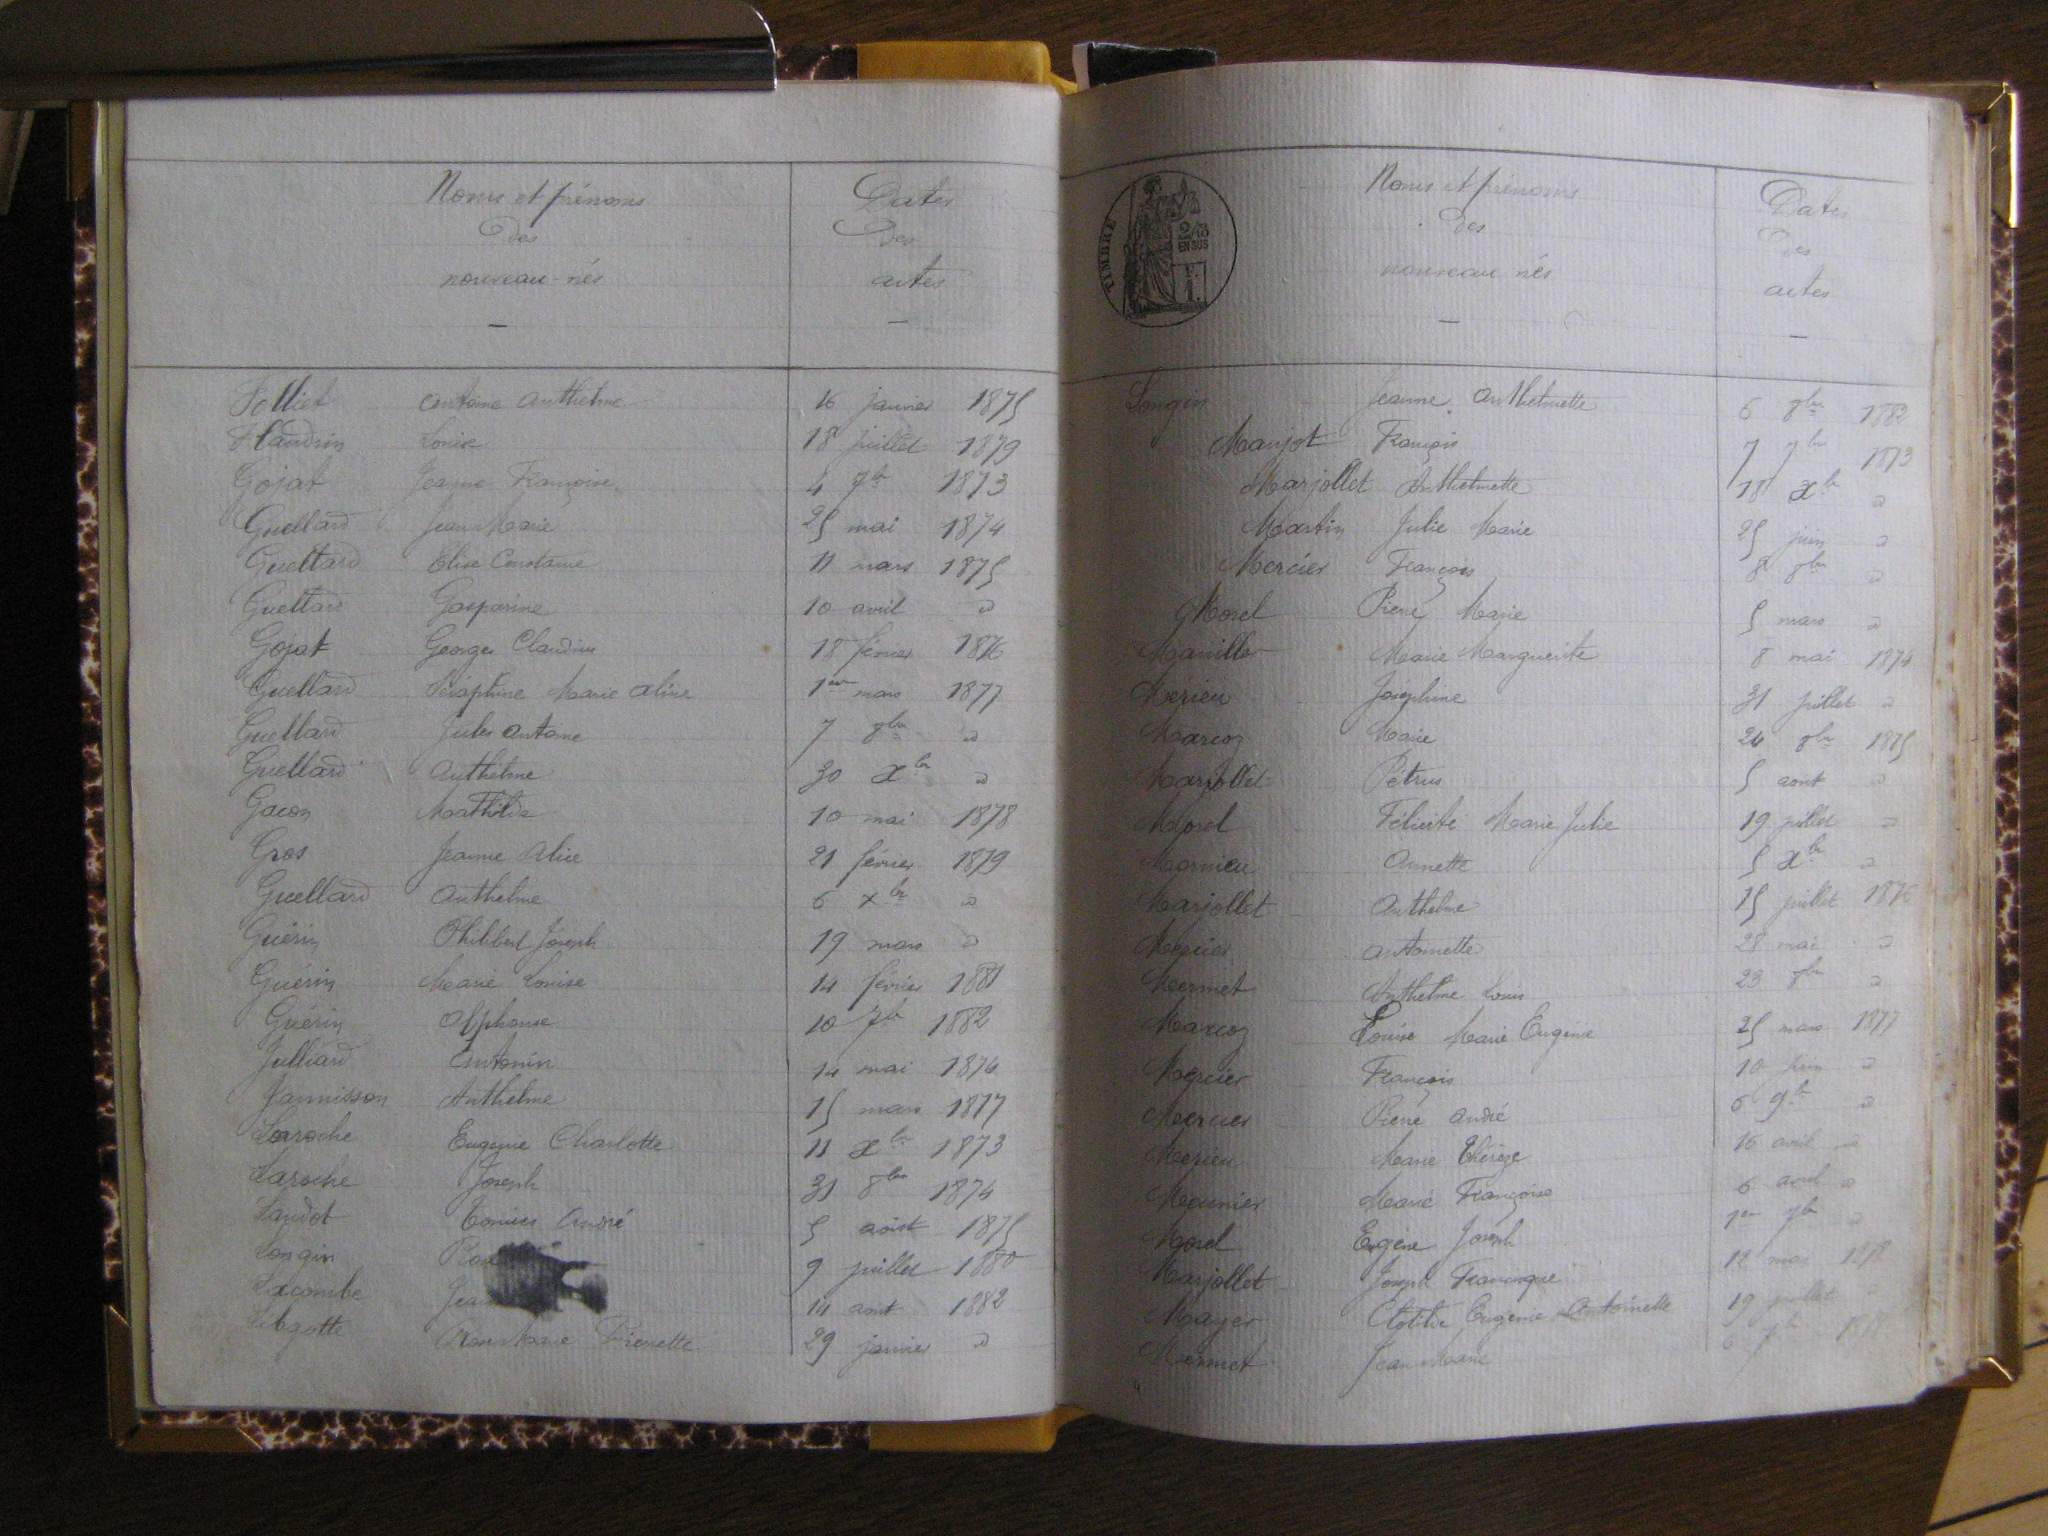 Noms et prénoms
des
nouveau-nés
Dates
des
actes
Folliet Antoine Anthelme 16 janvier 1875
Flandrin Louise 18 juillet 1879
Gojat Jeanne Françoise 4 7bre 1873
Guellard Jean Marie 25 mai 1874
Guellard Elise Constance 11 mars 1875
Guellard Gasparine 10 avril d
Gojat Georges Claudius 18 février 1876
Guellard Séraphine Marie Alise 1er mars 1877
Guellard Jules Antoine 7 8bre d
Guellard Anthelme 30 Xbre d
Gacon Mathilde 10 mai 1878
Gros Jeanne Alice 21 février 1879
Guellard Anthelme 6 Xbre d
Guérin Philibert Joseph 19 mars d
Guérin Marie Louise 14 février 1881
Guérin Alphonse 10 7bre 1882
Julliard Antonin 14 mai 1874
Jannisson Anthelme 15 mars 1877
Laroche Eugénie Charlotte 11 Xbre 1873
Laroche Joseph 31 8bre 1874
Landot André 5 août 1875
Longin 9 juillet 1880
Lacombe Jean 14 aout 1882
Pierrette 29 janvier d
TIMBRE
2/10
EN SUS
Noms et prénoms
des
nouveau nés
Dates
des
actes
Longin Jeanne Anthelmette 6 8bre 1882
Manjot François 7 7bre 1873
Marjollet Anthelmette 18 Xbre d
Martin Julie Marie 25 juin d
Mercier François 8 8bre d
Morel Pierre Marie 5 mars d
Marie Marguerite 8 mai 1874
Merieu Joséphine 31 juillet d
Marcoz Marie 24 8bre 1875
Marjollet Pétrus 5 aout d
Morel Félicité Marie Julie 19 juillet d
Annette 5 Xbre d
Marjollet Anthelme 15 juillet 1876
Mercier Antoinette 28 mai d
Mermet Anthelme Louis 23 8bre d
Marcoz Louise Marie Eugénie 25 mars 1877
Mercier François 10 juin d
Mercier Pierre André 6 9bre d
Merieu Marie Thérèze 16 avril d
Meunier Marie Françoise 6 avril d
Morel Eugène Joseph 1er 7bre d
Marjollet Joseph Francisque 12 mai 1878
Mayer Clotilde Eugénie Antoinette 19 juillet
Mermet Jean Marie 6 7bre